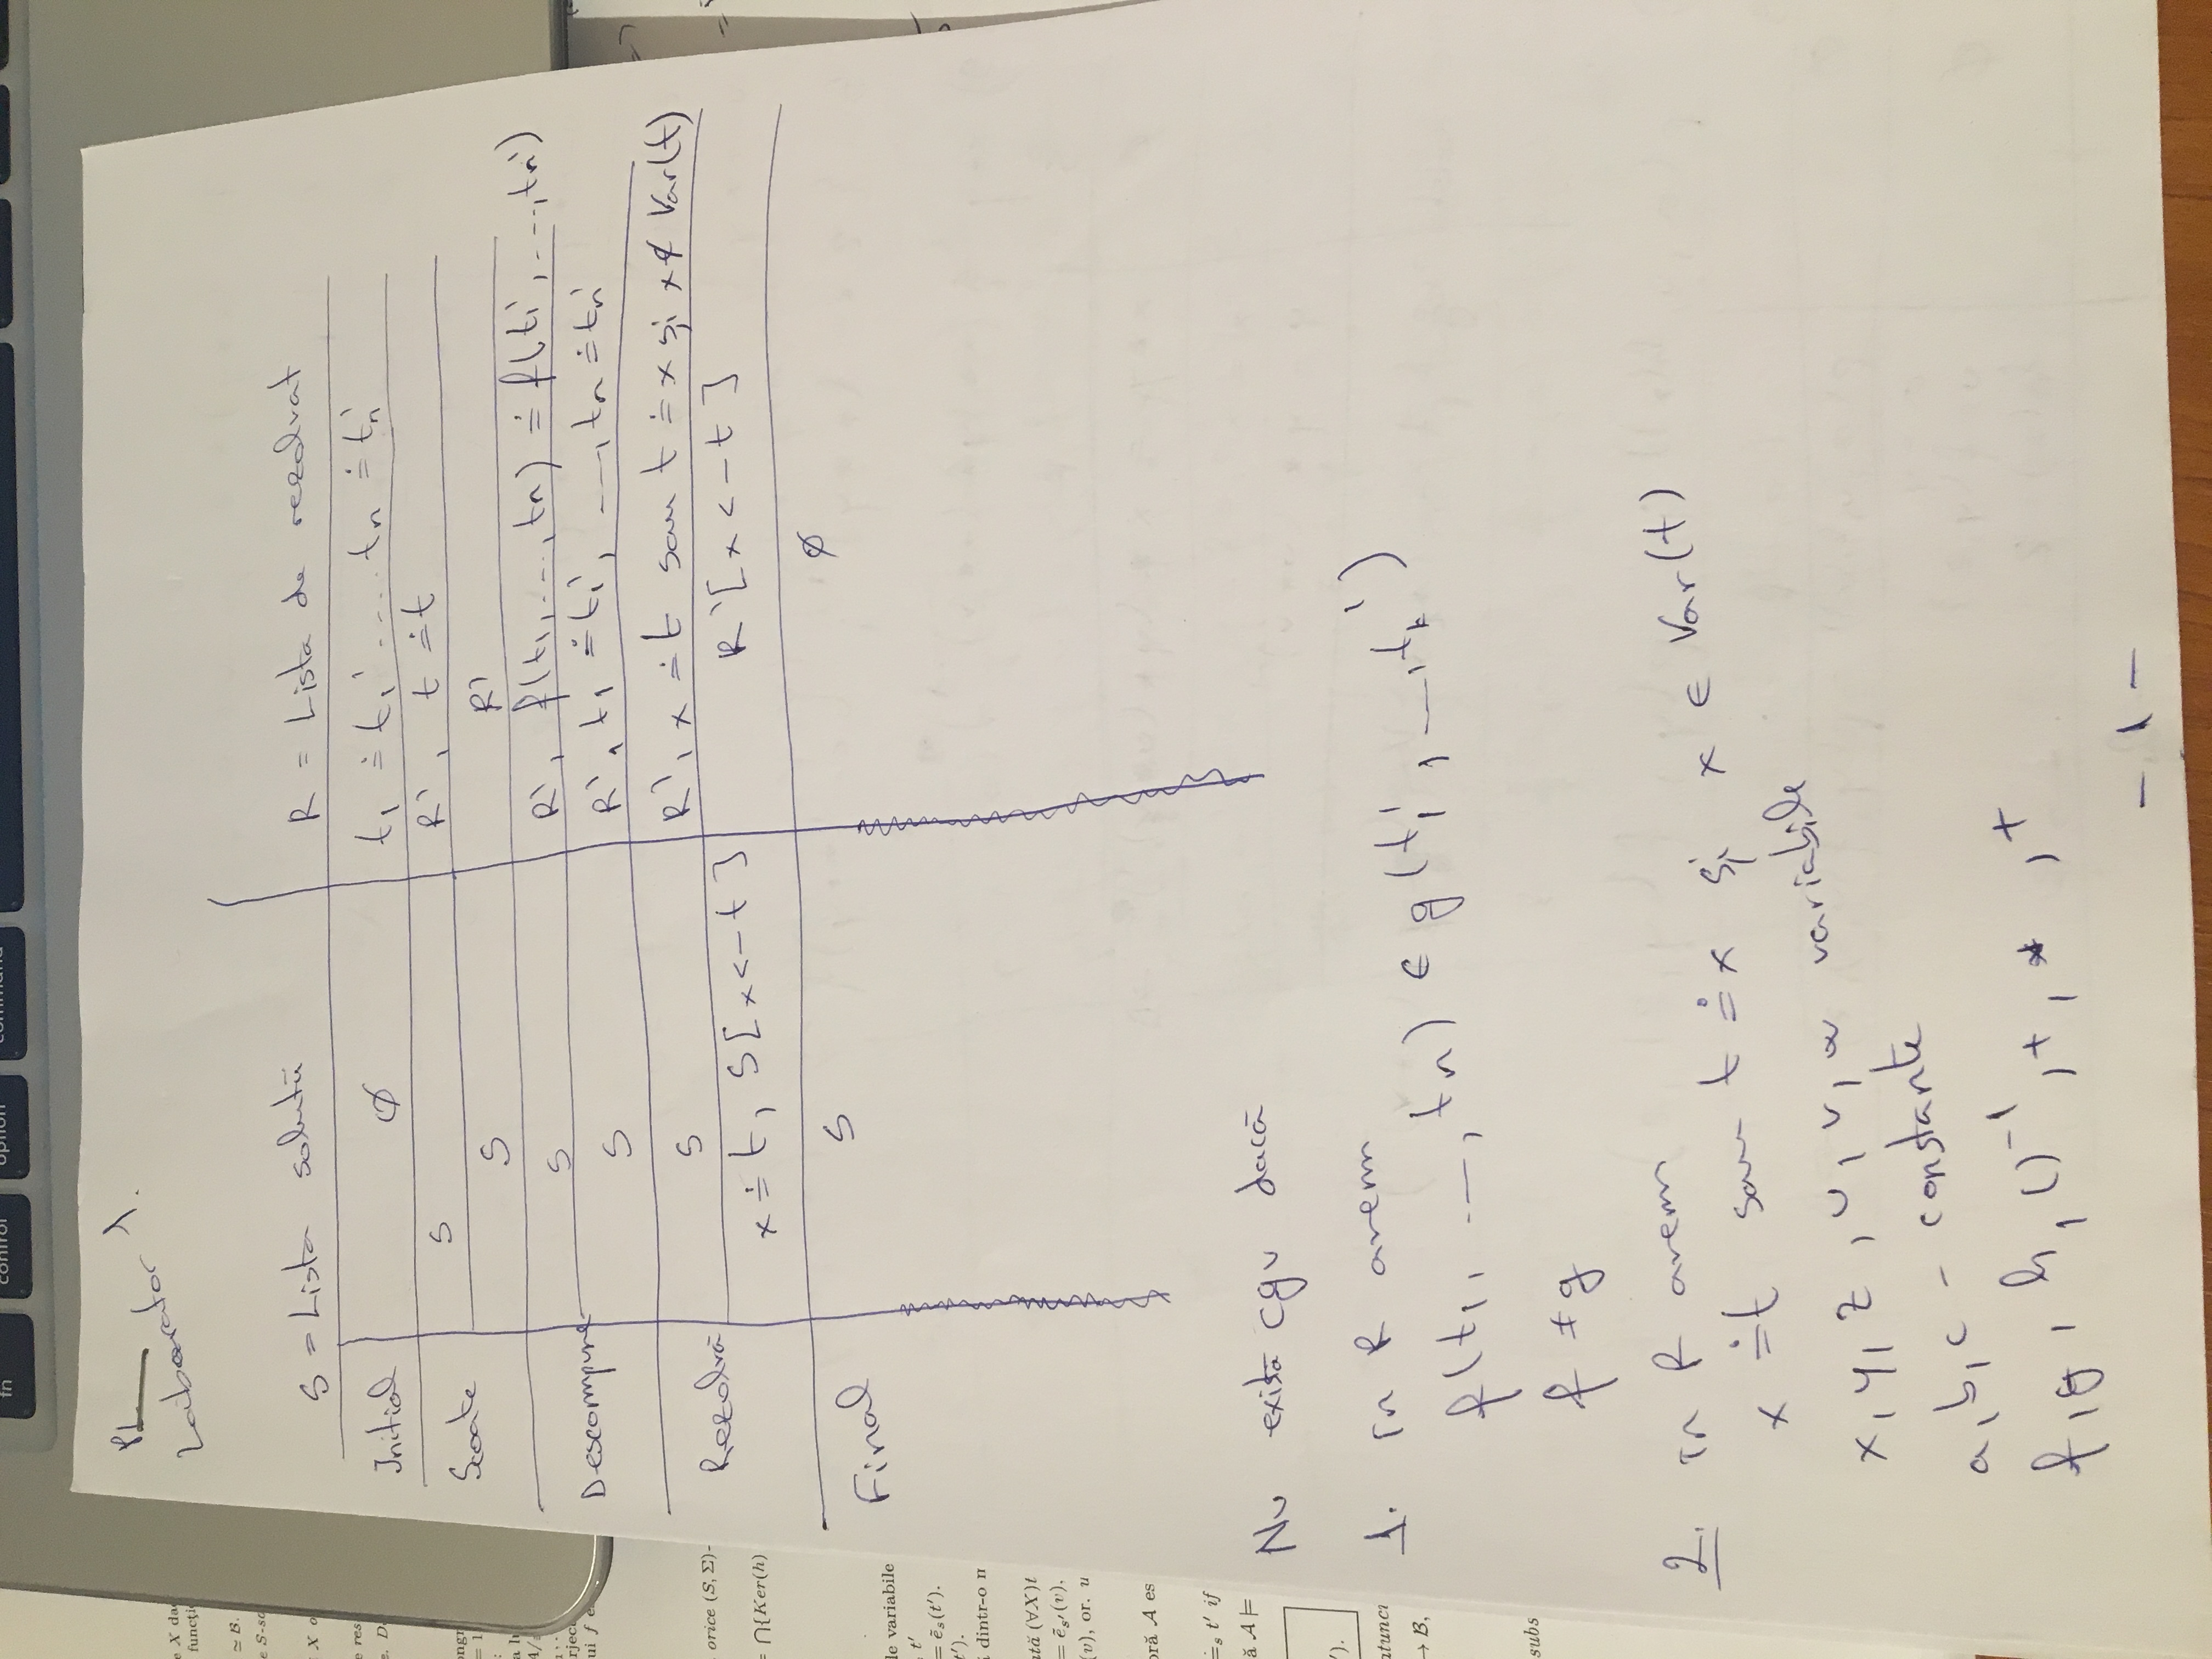 fn control option command
PL
Laborator 1.
S = Lista soluţii R = Lista de rezolvat
Initial ∅ t₁ ≐ t₁' .... tn ≐ tn'
Scoate S R', t ≐ t
S R'
Descompune S R', f(t₁, ..., tn) ≐ f(t₁', ..., tn')
S R', t₁ ≐ t₁', ..., tn ≐ tn'
Rezolvă S R', x ≐ t sau t ≐ x şi x ∉ Var(t)
x ≐ t, S[x <- t] R'[x <- t]
Final S ∅
Nu există cgu dacă
1. în R avem
f(t₁, ..., tn) ∈ g(t₁', ..., tk')
f ≠ g
2. în R avem
x ≐ t sau t ≐ x şi x ∈ Var(t)
x, y, z, u, v, w variabile
a, b, c - constante
f, g, h, ()⁻¹, +, *, +
- 1 -
e X da
funcţi
≃ B.
e S-sc
X o
e res
e. D
ongr
= 1
a lu
A/
rjec
ui f e
orice (S, Σ)-
= ⋂{Ker(h)
le variabile
t'
= ẽs(t').
t').
dintr-o m
ată (∀X)t
= ẽs'(v).
(v), or. u
bră A es
≐s t' if
ă A ⊨
').
atunci
→ B,
subs